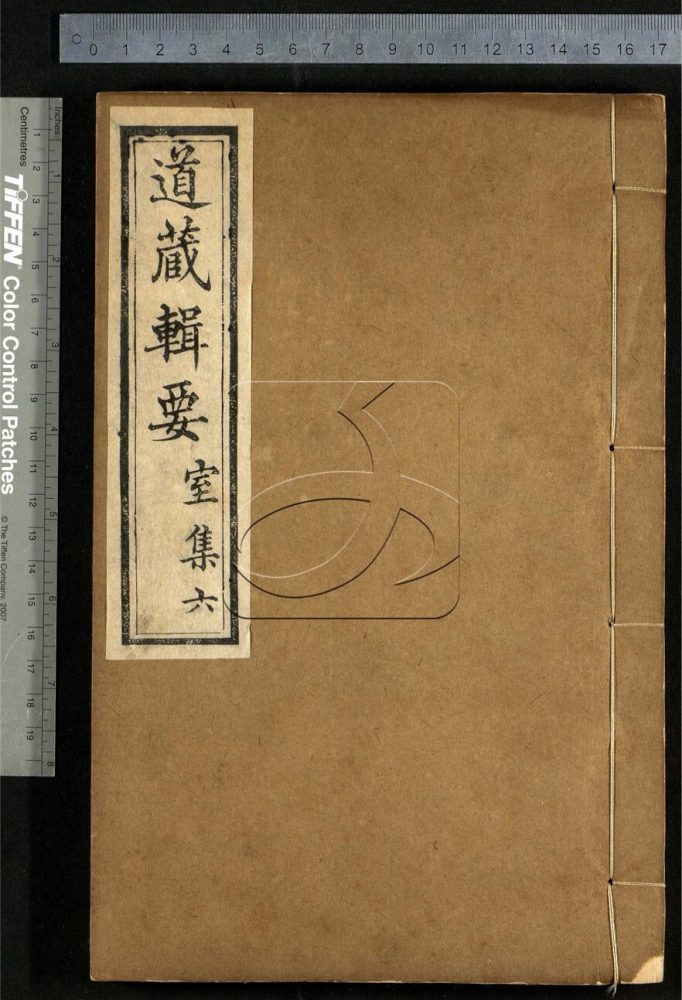 0 1 2 3 4 5 6 7 8 9 10 11 12 13 14 15 16 17
道蔵輯要
室集六
Inches 1 2 3 4 5 6 7 8
Centimetres 1 2 3 4 5 6 7 8 9 10 11 12 13 14 15 16 17 18 19
TIFFEN Color Control Patches
© The Tiffen Company, 2007